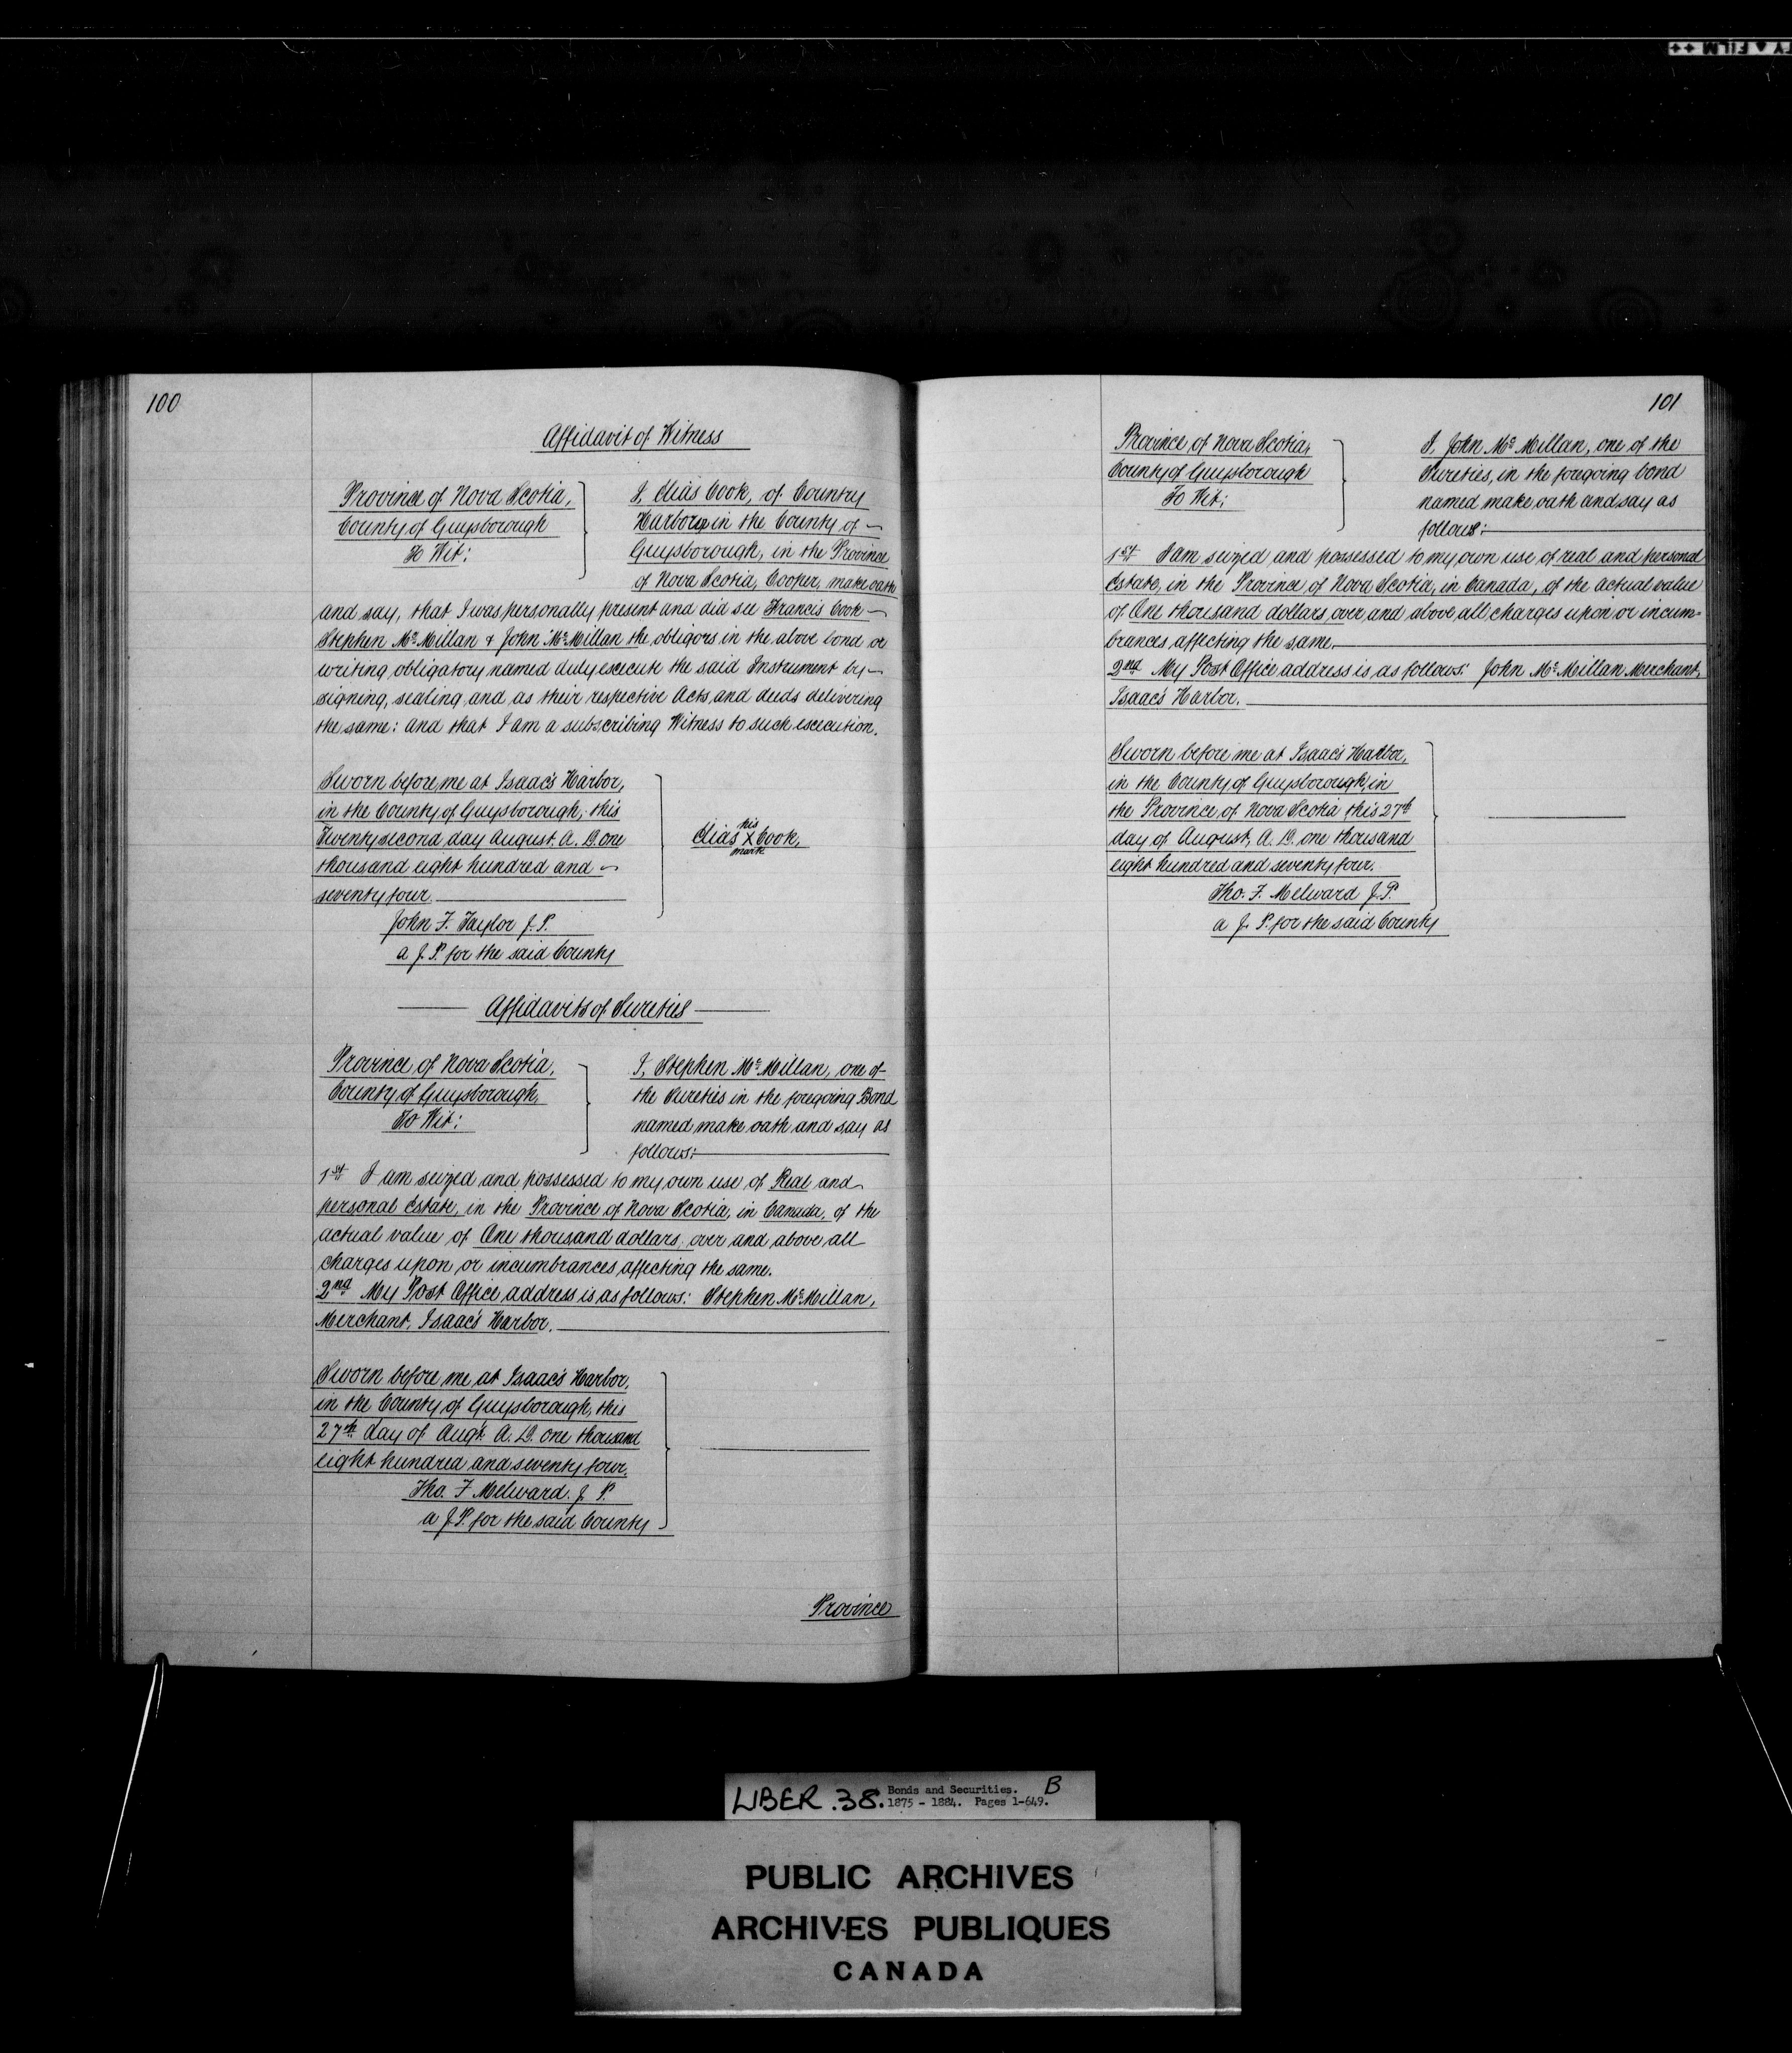 100
Affidavit of Witness
Province of Nova Scotia,
County of Guysborough
To Wit:
I, Elias Cook, of Country
Harbour in the County of
Guysborough, in the Province
of Nova Scotia, Cooper, make oath
and say, that I was personally present and did see Francis Cook
Stephen Mc Millan & John Mc Millan the obligors in the above bond or
writing obligatory named duly execute the said Instrument by
signing, sealing and as their respective Acts and deeds delivering
the same: and that I am a subscribing Witness to such execution.
Sworn before me at Isaac's Harbor,
in the County of Guysborough, this
Twenty second day August. A. D. one
thousand eight hundred and
seventy four.
John F. Taylor J. P.
a J. P. for the said County
his
Elias X Cook,
mark
Affidavits of Sureties
Province of Nova Scotia,
County of Guysborough,
To Wit:
I, Stephen Mc Millan, one of
the Sureties in the foregoing Bond
named make oath and say as
follows:
1st I am seized and possessed to my own use of Real and
personal Estate, in the Province of Nova Scotia, in Canada, of the
actual value of One thousand dollars, over and above all
charges upon or incumbrances affecting the same.
2nd My Post Office address is as follows: Stephen Mc Millan,
Merchant, Isaac's Harbor.
Sworn before me at Isaac's Harbor,
in the County of Guysborough, this
27th day of Augt. A. D. one thousand
eight hundred and seventy four.
Tho. F Melward. J. P.
a J. P. for the said County
Province
101
Province of Nova Scotia,
County of Guysborough
To Wit:
I, John Mc Millan, one of the
Sureties, in the foregoing bond
named make oath and say as
follows:
1st I am seized and possessed to my own use of real and personal
Estate, in the Province of Nova Scotia, in Canada, of the actual value
of One thousand dollars, over and above all charges upon or incum-
brances affecting the same.
2nd My Post Office address is as follows: John Mc Millan Merchant,
Isaac's Harbor.
Sworn before me at Isaac's Harbor,
in the County of Guysborough, in
the Province of Nova Scotia this 27th
day of August, A. D. one thousand
eight hundred and seventy four.
Tho. F. Melward J. P.
a J. P. for the said County
LIBER. 38. Bonds and Securities. B
1875 - 1884. Pages 1-649.
PUBLIC ARCHIVES
ARCHIVES PUBLIQUES
CANADA